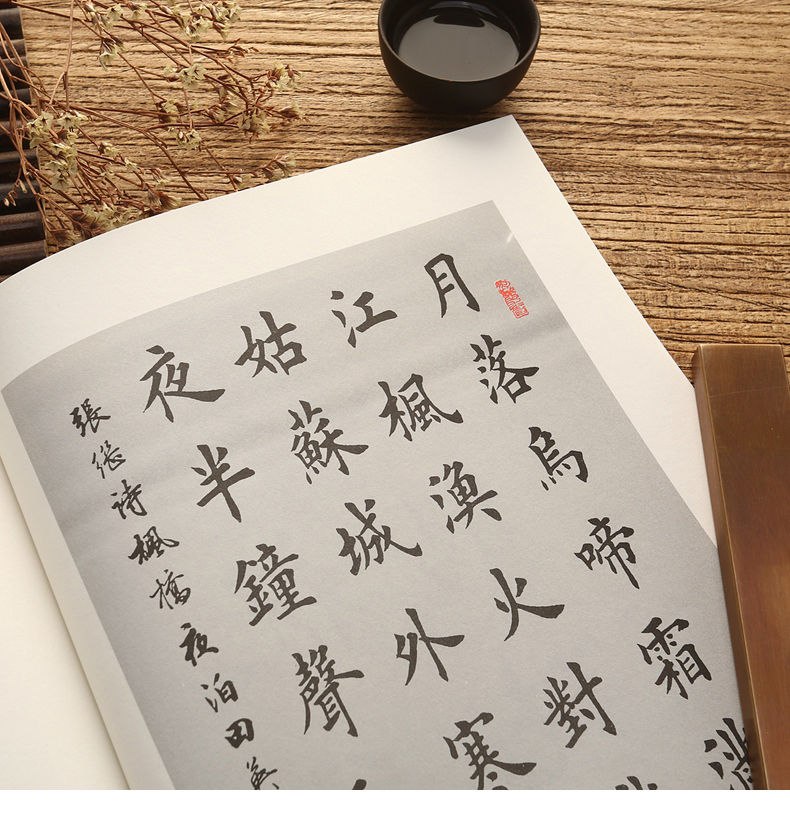 月落烏啼霜滿
江楓漁火對
姑蘇城外寒
夜半鐘聲
張继詩楓橋夜泊田英